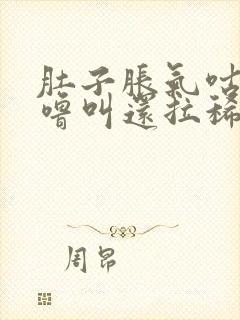 肚子脹氣咕
嚕叫還拉稀
周昂